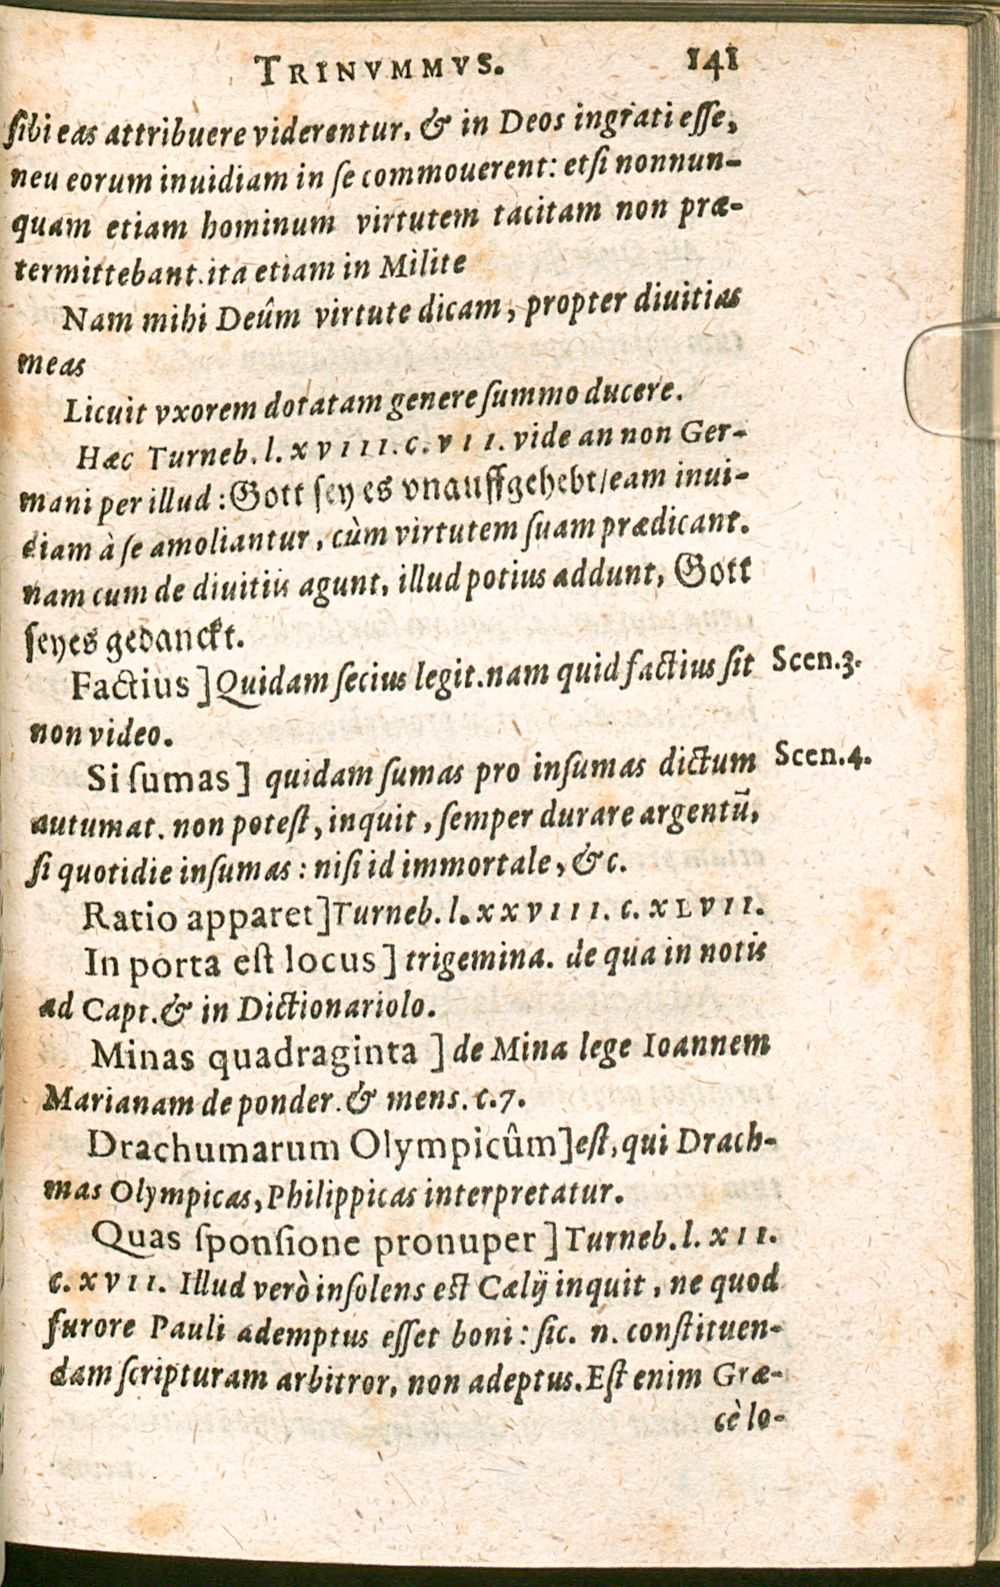 TRINVMMVS. 141
ſibi eas attribuere viderentur, & in Deos ingrati eſſe,
neu eorum inuidiam in ſe commouerent: etſi nonnun-
quam etiam hominum virtutem tacitam non præ-
termittebant. ita etiam in Milite
Nam mihi Deûm virtute dicam, propter diuitias
meas
Licuit vxorem dotatam genere ſummo ducere.
Hæc Turneb. l. xviii. c. vii. vide an non Ger-
mani per illud: Gott ſey es vnauffgehebt/ eam inui-
diam à ſe amoliantur, cùm virtutem ſuam prædicant.
nam cum de diuitiis agunt, illud potius addunt, Gott
ſeyes gedanckt.
Factius] Quidam ſecius legit. nam quid factius ſit Scen.3.
non video.
Si ſumas] quidam ſumas pro inſumas dictum Scen.4.
autumat. non poteſt, inquit, ſemper durare argentū,
ſi quotidie inſumas: niſi id immortale, &c.
Ratio apparet] Turneb. l. xxviii. c. xLvii.
In porta eſt locus] trigemina. de qua in notis
ad Capt. & in Dictionariolo.
Minas quadraginta] de Mina lege Ioannem
Marianam de ponder. & mens. c.7.
Drachumarum Olympicûm] eſt, qui Drach-
mas Olympicas, Philippicas interpretatur.
Quas ſponſione pronuper] Turneb. l. xii.
c. xvii. Illud verò inſolens eſt Cælij inquit, ne quod
furore Pauli ademptus eſſet boni: ſic. n. conſtituen-
dam ſcripturam arbitror, non adeptus. Eſt enim Græ-
cè lo-